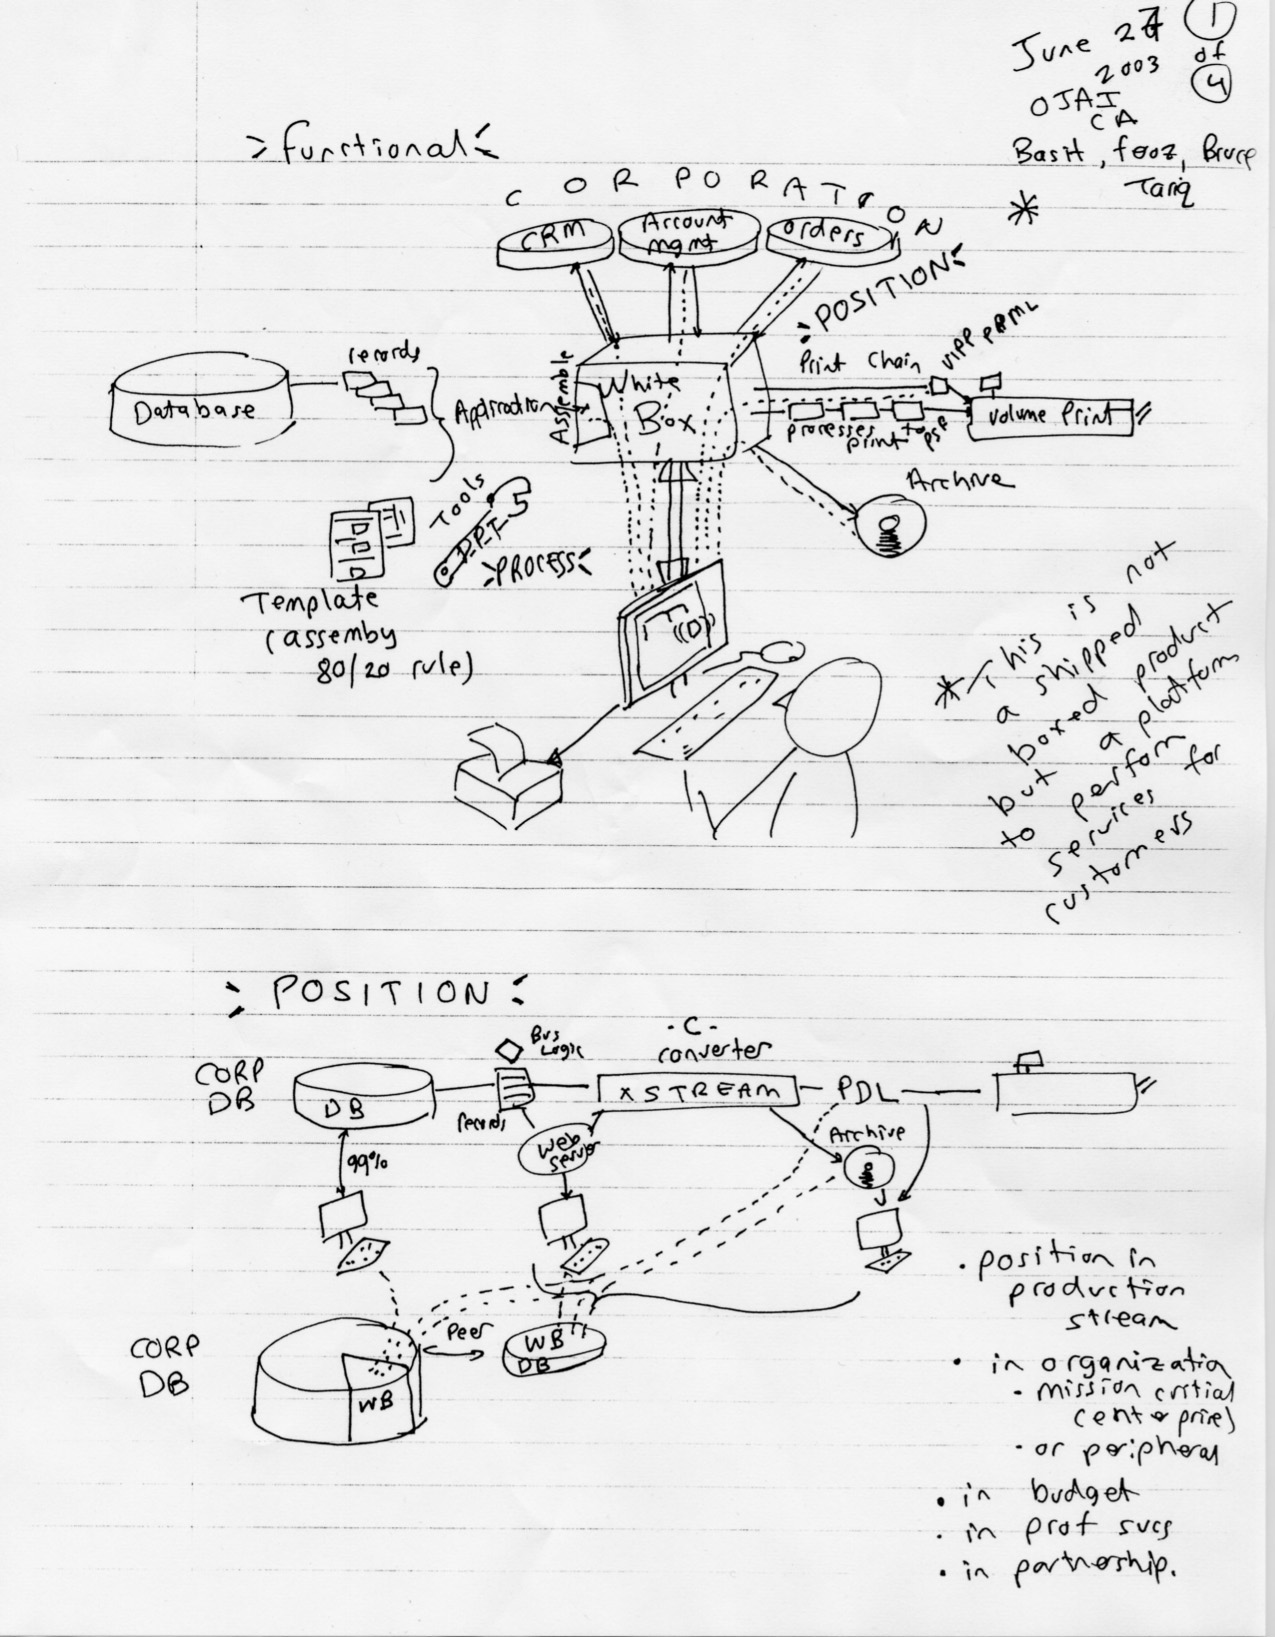 June 27
2003
OJAI
CA
1
of
4
Basit, fooz, Bruce
Tariq
*
Functional
CORPORATION
CRM
Account
mgmt
orders
POSITION
Database
records
Application
Assemble
White
Box
Print Chain
VIPP PPML
processes
print to
Volume Print
Archive
Template
(assemby
80/20 rule)
Tools
D.P.T.
PROCESS
* This is not
a shipped
boxed product
but a platform
to perform
services for
customers
POSITION
CORP
DB
DB
Bus
Logic
records
- C -
converter
XSTREAM
PDL
99%
Web
server
Archive
CORP
DB
WB
Peer
WB
DB
• position in
production
stream
• in organizatin
- mission critial
- or peripheral
• in budget
• in prof svcs
• in partnership.